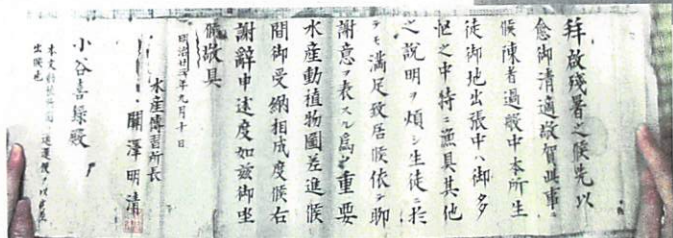 拝啓残暑之候先以
愈御清適敬賀此事ニ
候陳者過般中本所生
徒御地出張中ハ御多
忙之中特ニ漁具其他
之説明ヲ煩シ生徒ニ於
テモ満足致居候依テ聊
謝意ヲ表スル為メ重要
水産動植物圖差進候
間御受納相成度候右
謝辞申述度如玆御座
候敬具
明治廿三年九月十日
水産傳習所長
関澤明清
小谷喜録殿
本文
出候也